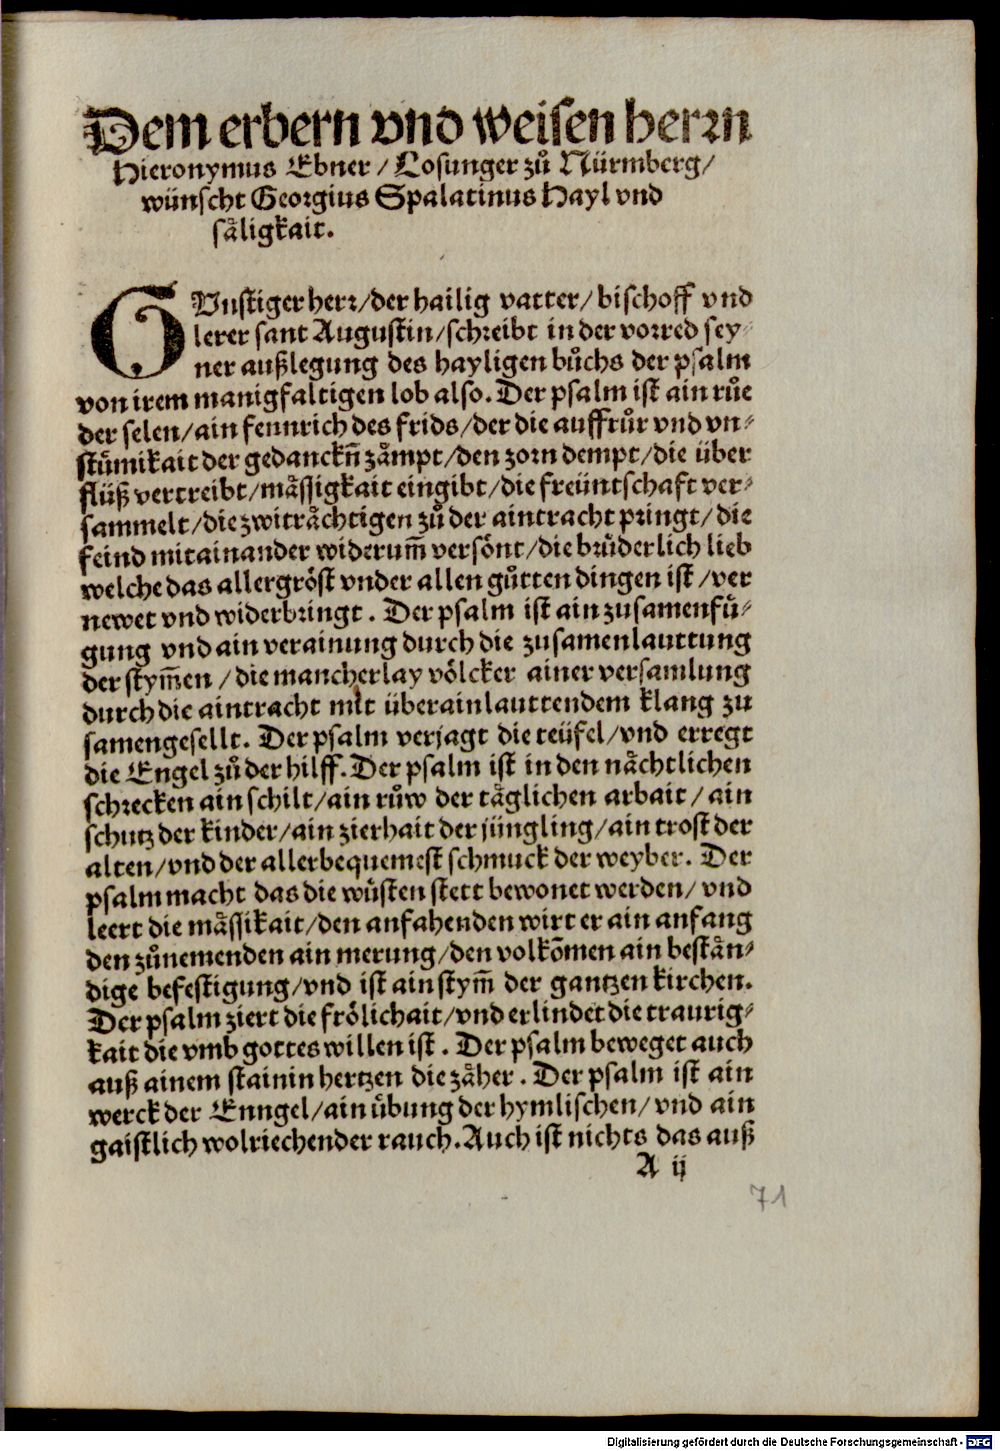 Dem erbern vnd weisen herrn
Hieronymus Ebner / Losunger zů Nürmberg /
wünscht Georgius Spalatinus Hayl vnd
säligkait.
GVnstiger herr / der hailig vatter / bischoff vnd
lerer sant Augustin / schreibt in der vorred sey⸗
ner außlegung des hayligen bůchs der psalm
von irem manigfaltigen lob also. Der psalm ist ain růe
der selen / ain fennrich des frids / der die auffrůr vnd vn⸗
stůmikait der gedanckñ zåmpt / den zorn dempt / die über
flüß vertreibt / mässigkait eingibt / die freüntschaft ver⸗
sammelt / die zwiträchtigen zů der aintracht pringt / die
feind mitainander widerum̃ versönt / die brůderlich lieb
welche das allergröst vnder allen gůtten dingen ist / ver
newet vnd widerbringt . Der psalm ist ain zusamenfü⸗
gung vnd ain verainung durch die zusamenlauttung
der stym̃en / die mancherlay völcker ainer versamlung
durch die aintracht mit überainlauttendem klang zu
samengesellt. Der psalm verjagt die teüfel / vnd erregt
die Engel zů der hilff. Der psalm ist in den nächtlichen
schrecken ain schilt / ain růw der täglichen arbait / ain
schutz der kinder / ain zierhait der jüngling / ain trost der
alten / vnd der allerbequemest schmuck der weyber. Der
psalm macht das die wüsten stett bewonet werden / vnd
leert die mässikait / den anfahenden wirt er ain anfang
den zůnemenden ain merung / den volkõmen ain bestän⸗
dige befestigung / vnd ist ain stym̃ der gantzen kirchen.
Der psalm ziert die frölichait / vnd erlindet die traurig⸗
kait die vmb gottes willen ist . Der psalm beweget auch
auß ainem stainin hertzen die zäher . Der psalm ist ain
werck der Enngel / ain übung der hymlischen / vnd ain
gaistlich wolriechender rauch. Auch ist nichts das auß
A ij
71
Digitalisierung gefördert durch die Deutsche Forschungsgemeinschaft - DFG